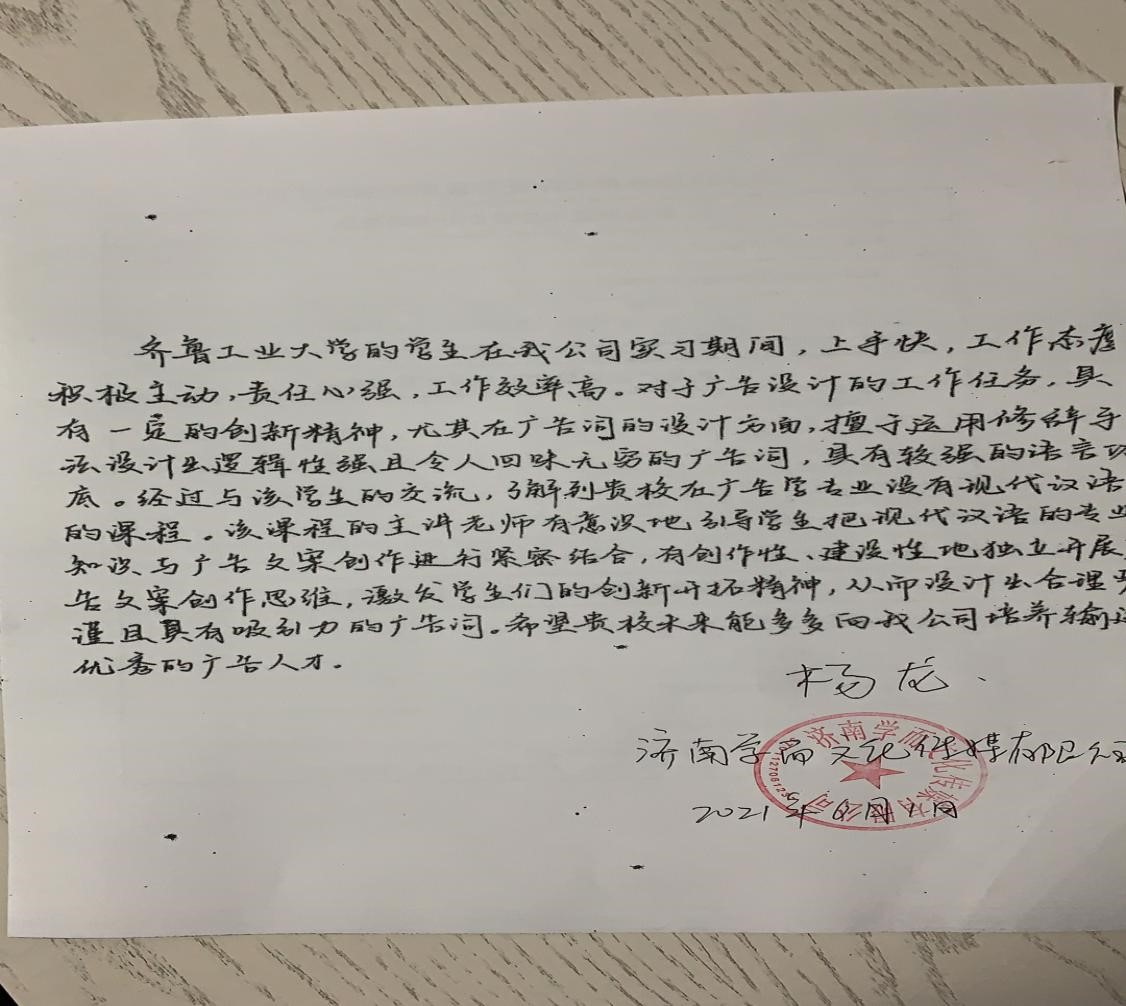 齐鲁工业大学的学生在我公司实习期间，上手快，工作态度
积极主动，责任心强，工作效率高。对于广告设计的工作任务，具
有一定的创新精神，尤其在广告词的设计方面，擅于运用修辞手
法设计出逻辑性强且令人回味无穷的广告词，具有较强的语言功
底。经过与该学生的交流，了解到贵校在广告学专业设有现代汉语
的课程。该课程的主讲老师有意识地引导学生把现代汉语的专业
知识与广告文案创作进行紧密结合，有创作性、建设性地独立开展
告文案创作思维，激发学生们的创新开拓精神，从而设计出合理
谨且具有吸引力的广告词。希望贵校未来能多多向我公司培养输送
优秀的广告人才。
杨龙
济南学而文化传媒有限公司
济南学而文化传媒有限公司
2021年6月1日